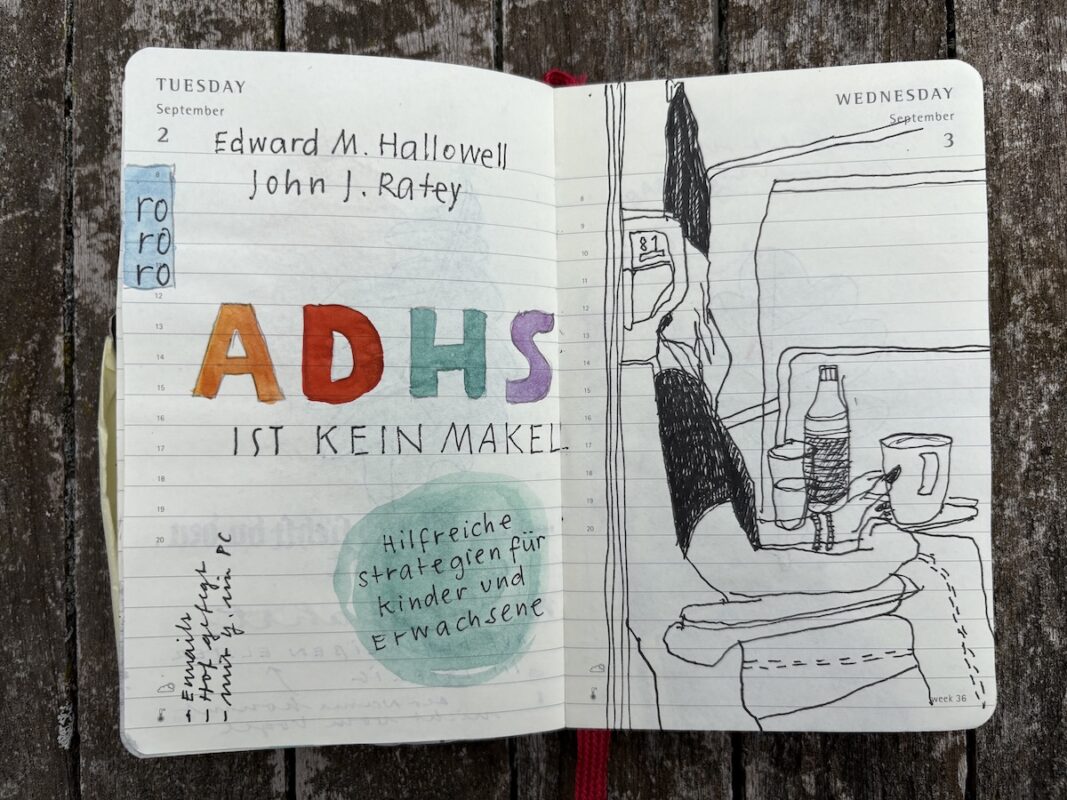 TUESDAY
September
2
Edward M. Hallowell
John J. Ratey
8
ro
ro
ro
12
13
ADHS
14
15
16
IST KEIN MAKEL.
17
18
19
20
Hilfreiche
strategien für
kinder und
Erwachsene
- Emails
- Hof gefegt
- mit y. PC
WEDNESDAY
September
3
8
9
10
11
12
13
14
15
16
17
18
19
20
81
week 36